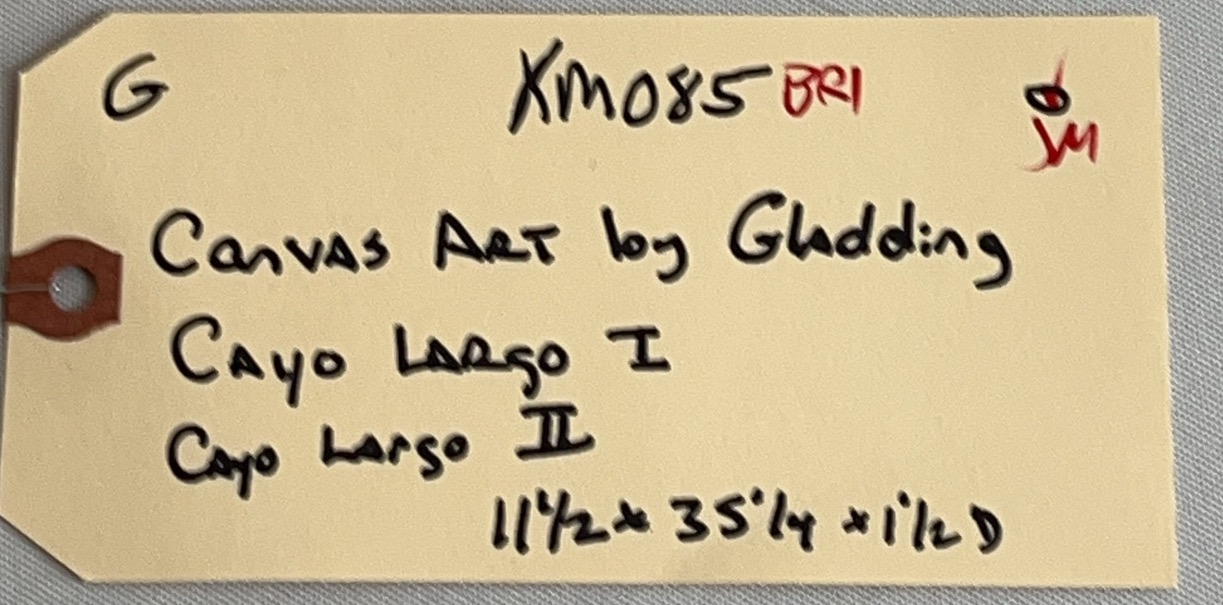 G XM085 BRI
JM
Canvas Art by Gladding
Cayo Largo I
Cayo Largo II
11 1/2 x 35 1/4 x 1 1/2 D